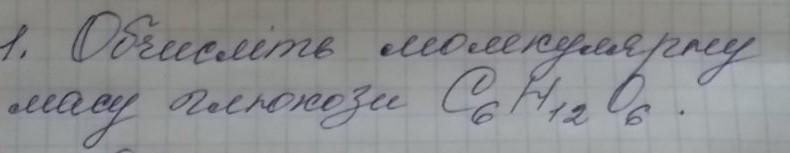 1. Обчисліть молекулярну
масу глюкози C₆H₁₂O₆.